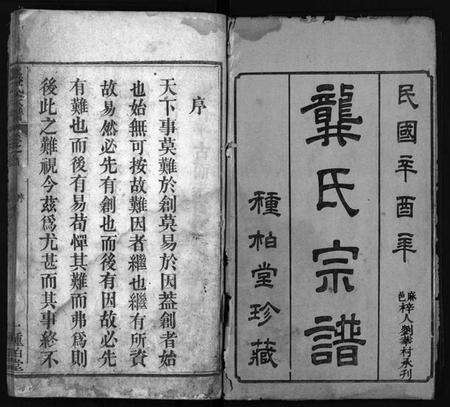 民國辛酉年
龔氏宗譜
種柏堂珍藏
麻邑梓人劉華村承刊
序
天下事莫難於創莫易於因蓋創者始
也始無可按故難因者繼也繼有所資
故易然必先有創也而後有因故必先
有難也而後有易苟憚其難而弗爲則
後此之難視今茲爲尤甚而其事終不
種柏堂